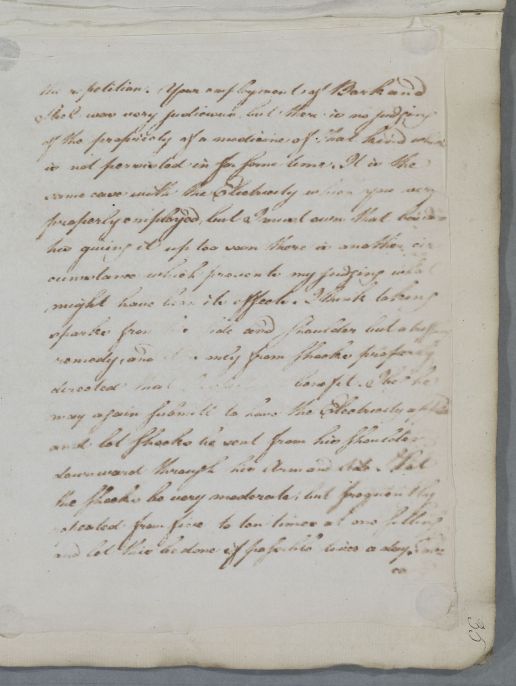 the repetition. Your employment of Bark and
was very judicious but there is no judging
of the propriety of a medicine of that kind which
is not persisted in for some time. It is the
same case with the Electricity which you very
properly employed, but I must own that besides
his giving it up too soon there is another cir
cumstance which prevents my judging what
might have been its effects. I think taking
sparks from the side and shoulder but a
remedy, and only from shocks properly
directed that benefit. he
may again submit to have the Electricity applied
and let shocks be sent from his shoulder
downward through his Arm and side. Let
the shocks be very moderate, but frequently
repeated from five to ten times at one sitting
and let this be done if possible twice a day.
35